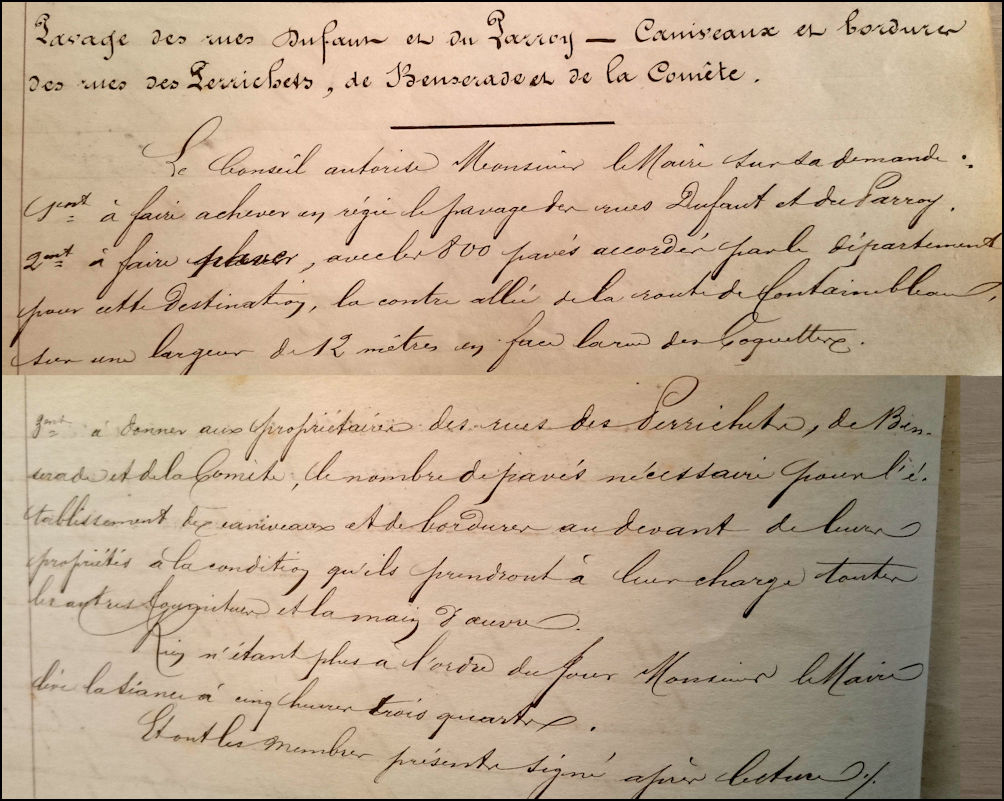 Pavage des rues Dufaut et du Parroy — Caniveaux et bordures
des rues des Perrichets, de Benserade et de la Comète.
Le Conseil autorise Monsieur le Maire sur sa demande :
1ent à faire achever en régie le pavage des rues Dufaut et du Parroy.
2ent à faire paver, avec les 800 pavés accordés par le département
pour cette destination, la contre allée de la route de Fontainebleau,
sur une largeur de 12 mètres en face la rue des Coquettes.
3ent à donner aux propriétaires des rues des Perrichets, de Ben-
serade et de la Comète, le nombre de pavés nécessaire pour l'é-
tablissement de caniveaux et de bordures au devant de leurs
propriétés à la condition qu'ils prendront à leur charge toutes
les autres fournitures et la main d'œuvre.
Rien n'étant plus à l'ordre du jour Monsieur le Maire
lève la séance à cinq heures trois quarts.
Et ont les membres présents signé après lecture ./.